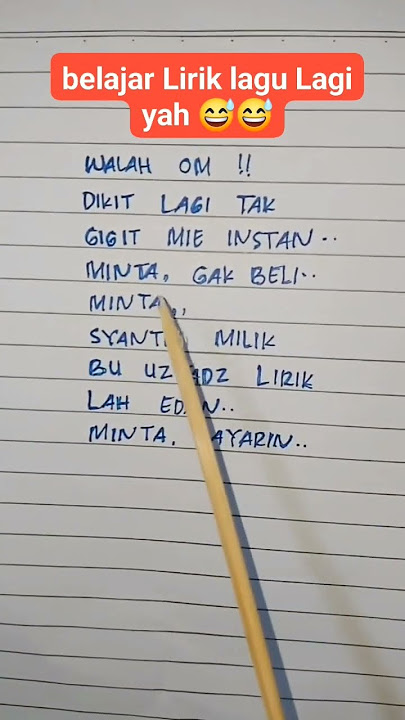 belajar Lirik lagu Lagi
yah 😅😅
WALAH OM !!
DIKIT LAGI TAK
GIGIT MIE INSTAN..
MINTA. GAK BELI..
MINTA..
MILIK
BU LIRIK
LAH
MINTA.